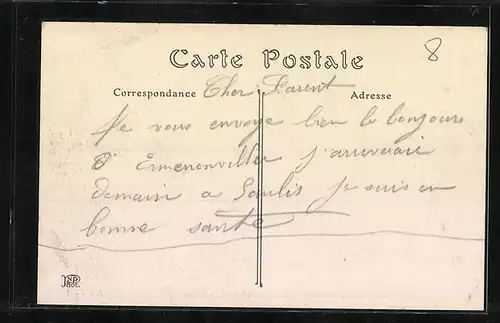 8
Carte Postale
Correspondance Cher Parent Adresse
Je vous envoye bien le bonjour
d' Ermenonviller j'arriverai
demain a Senlis Je suis en
bonne santé
ND PHOT.